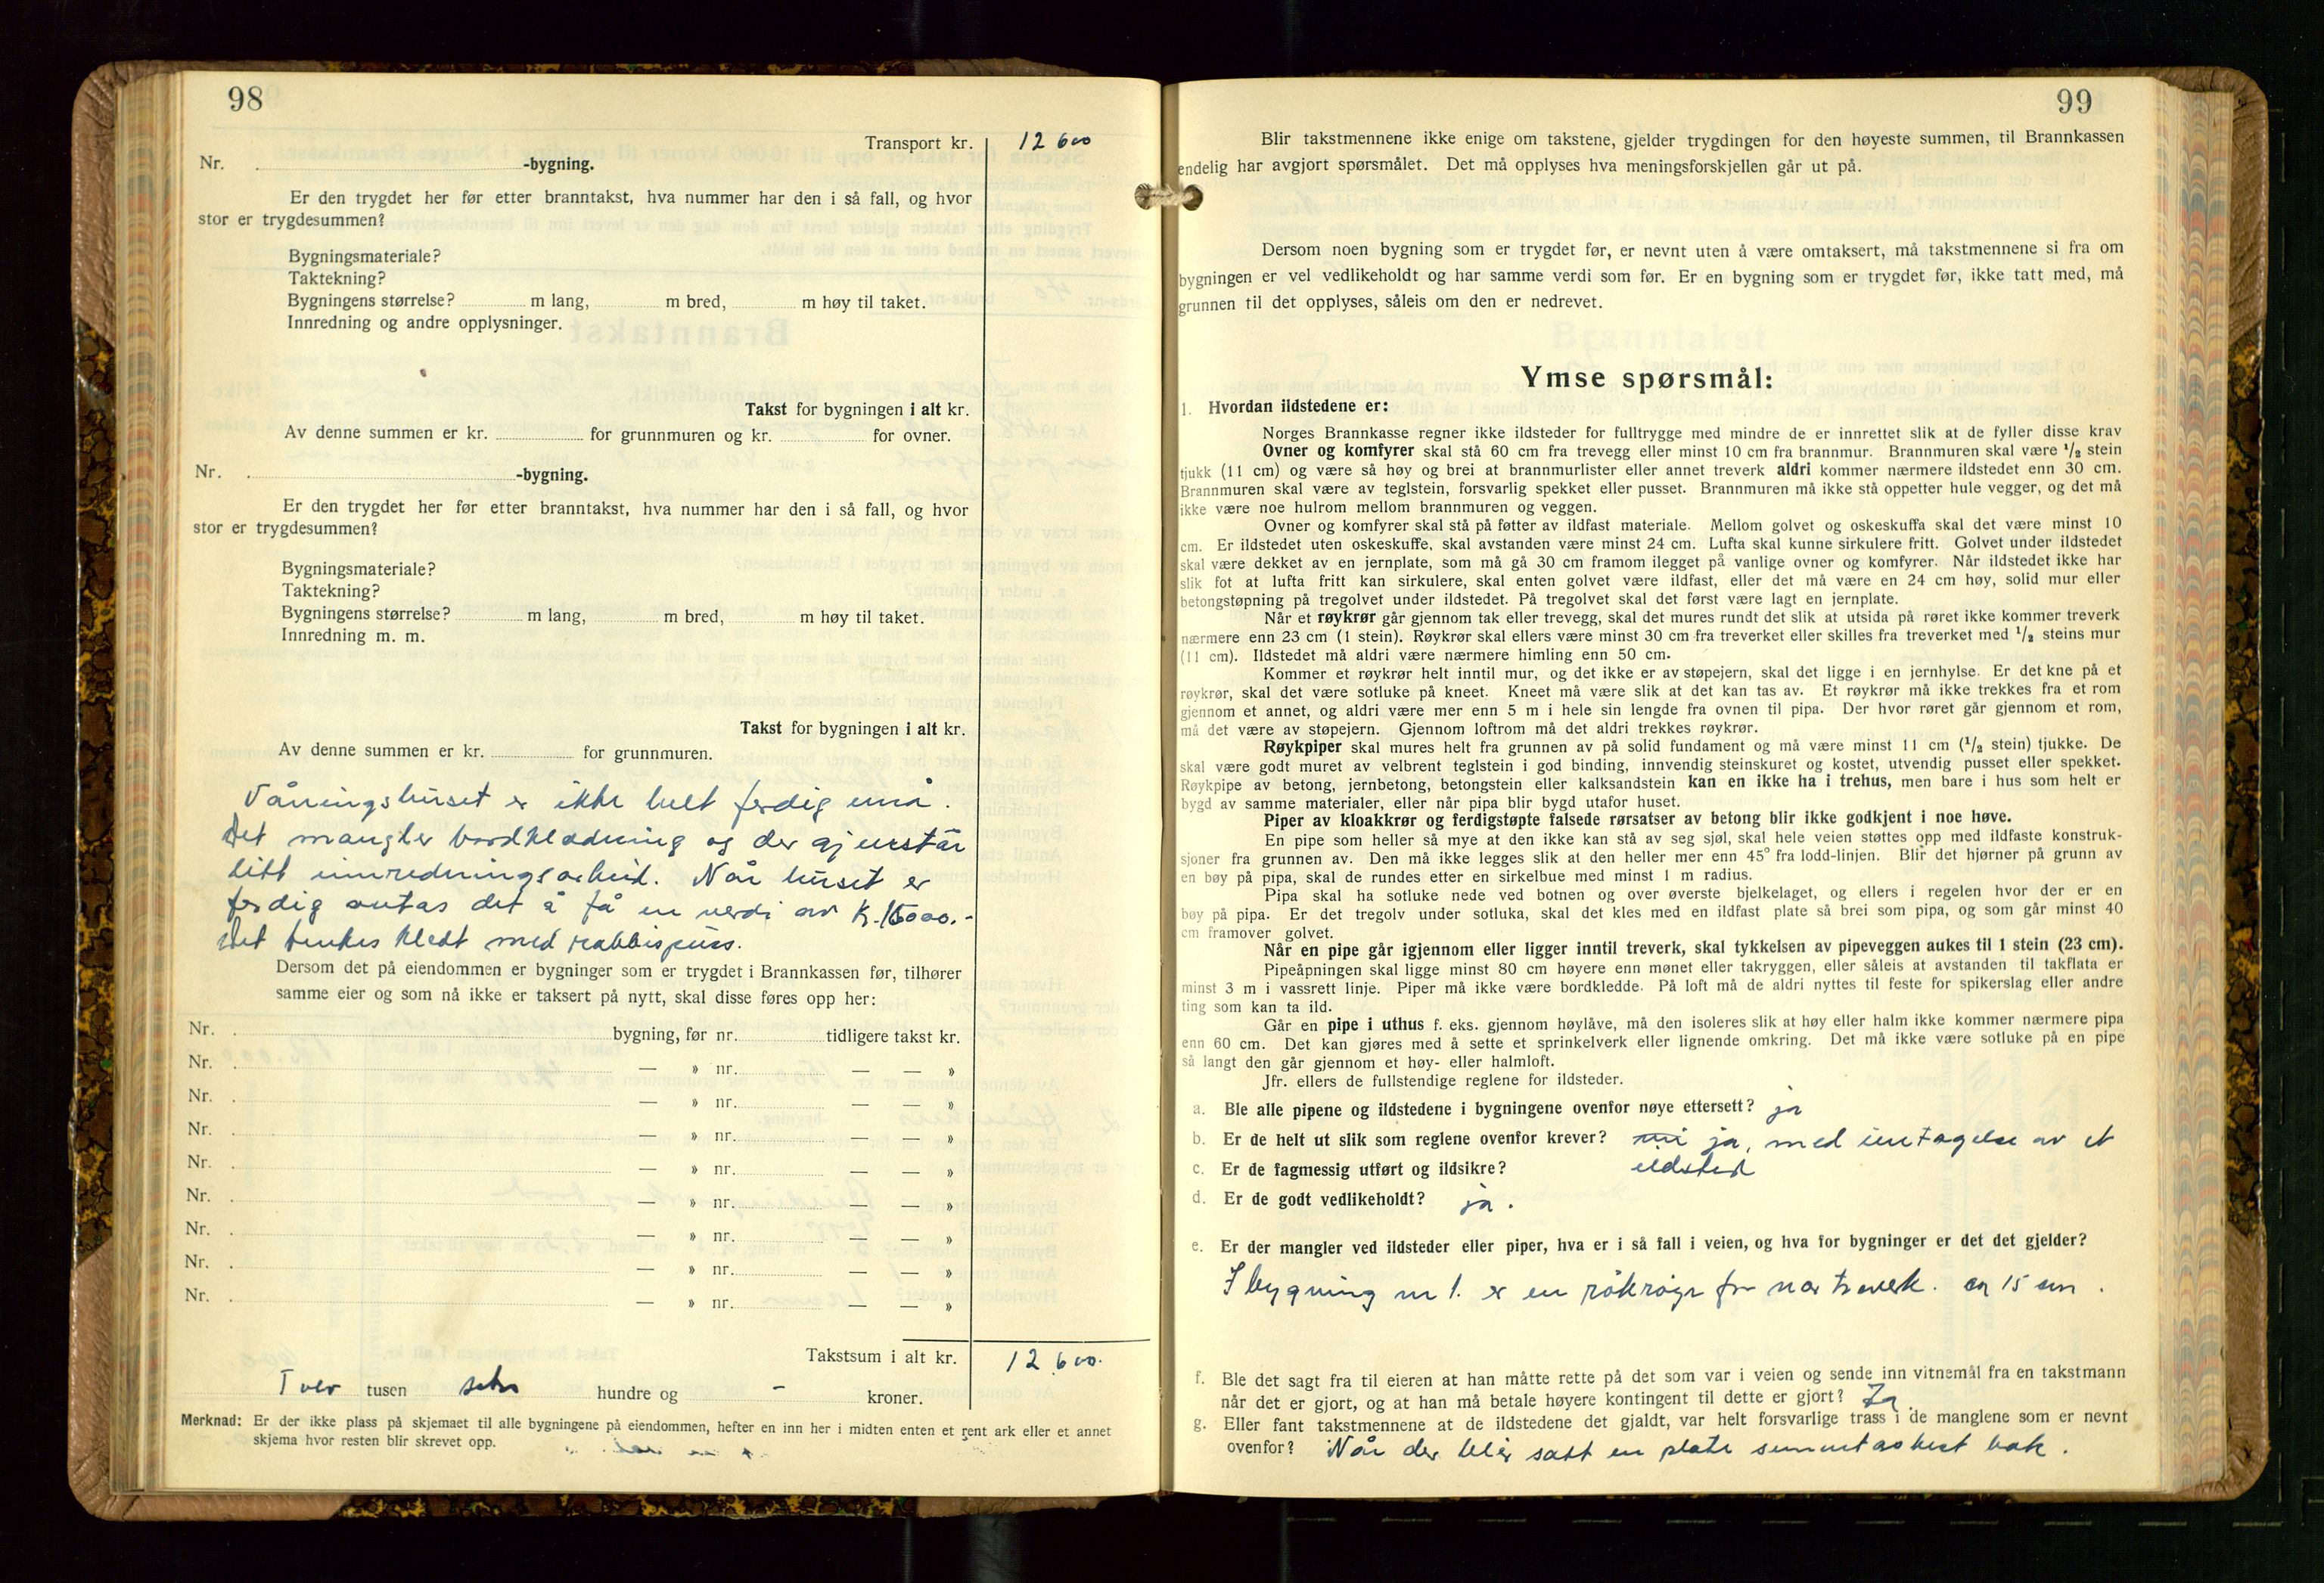 98
Transport kr. 12 600
Nr. -bygning.
Er den trygdet her før etter branntakst, hva nummer har den i så fall, og hvor
stor er trygdesummen?
Bygningsmateriale?
Taktekning?
Bygningens størrelse? m lang, m bred, m høy til taket.
Innredning og andre opplysninger.
Takst for bygningen i alt kr.
Av denne summen er kr. for grunnmuren og kr. for ovner.
Nr. -bygning.
Er den trygdet her før etter branntakst, hva nummer har den i så fall, og hvor
stor er trygdesummen?
Bygningsmateriale?
Taktekning?
Bygningens størrelse? m lang, m bred, m høy til taket.
Innredning m. m.
Takst for bygningen i alt kr.
Av denne summen er kr. for grunnmuren.
Våningshuset er ikke helt ferdig ennå.
Det mangler bordklædning og der gjenstår
litt innredningsarbeid. Når huset er
ferdig antas det å få en verdi av K. 15000.-
Det tenkes kledt med rabbispuss.
Dersom det på eiendommen er bygninger som er trygdet i Brannkassen før, tilhører
samme eier og som nå ikke er taksert på nytt, skal disse føres opp her:
Nr. bygning, før nr. tidligere takst kr.
Nr. — » nr. — — »
Nr. — » nr. — — »
Nr. — » nr. — — »
Nr. — » nr. — — »
Nr. — » nr. — — »
Nr. — » nr. — — »
Nr. — » nr. — — »
Nr. — » nr. — — »
Takstsum i alt kr. 12 600.
Tolv tusen seks hundre og - kroner.
Merknad: Er der ikke plass på skjemaet til alle bygningene på eiendommen, hefter en inn her i midten enten et rent ark eller et annet
skjema hvor resten blir skrevet opp.
99
Blir takstmennene ikke enige om takstene, gjelder trygdingen for den høyeste summen, til Brannkassen
endelig har avgjort spørsmålet. Det må opplyses hva meningsforskjellen går ut på.
Dersom noen bygning som er trygdet før, er nevnt uten å være omtaksert, må takstmennene si fra om
bygningen er vel vedlikeholdt og har samme verdi som før. Er en bygning som er trygdet før, ikke tatt med, må
grunnen til det opplyses, såleis om den er nedrevet.
Ymse spørsmål:
1. Hvordan ildstedene er:
Norges Brannkasse regner ikke ildsteder for fulltrygge med mindre de er innrettet slik at de fyller disse krav
Ovner og komfyrer skal stå 60 cm fra trevegg eller minst 10 cm fra brannmur. Brannmuren skal være 1/2 stein
tjukk (11 cm) og være så høy og brei at brannmurlister eller annet treverk aldri kommer nærmere ildstedet enn 30 cm.
Brannmuren skal være av teglstein, forsvarlig spekket eller pusset. Brannmuren må ikke stå oppetter hule vegger, og det må
ikke være noe hulrom mellom brannmuren og veggen.
Ovner og komfyrer skal stå på føtter av ildfast materiale. Mellom golvet og oskeskuffa skal det være minst 10
cm. Er ildstedet uten oskeskuffe, skal avstanden være minst 24 cm. Lufta skal kunne sirkulere fritt. Golvet under ildstedet
skal være dekket av en jernplate, som må gå 30 cm framom ilegget på vanlige ovner og komfyrer. Når ildstedet ikke har
slik fot at lufta fritt kan sirkulere, skal enten golvet være ildfast, eller det må være en 24 cm høy, solid mur eller
betongstøpning på tregolvet under ildstedet. På tregolvet skal det først være lagt en jernplate.
Når et røykrør går gjennom tak eller trevegg, skal det mures rundt det slik at utsida på røret ikke kommer treverk
nærmere enn 23 cm (1 stein). Røykrør skal ellers være minst 30 cm fra treverket eller skilles fra treverket med 1/2 steins mur
(11 cm). Ildstedet må aldri være nærmere himling enn 50 cm.
Kommer et røykrør helt inntil mur, og det ikke er av støpejern, skal det ligge i en jernhylse. Er det kne på et
røykrør, skal det være sotluke på kneet. Kneet må være slik at det kan tas av. Et røykrør må ikke trekkes fra et rom
gjennom et annet, og aldri være mer enn 5 m i hele sin lengde fra ovnen til pipa. Der hvor røret går gjennom et rom,
må det være av støpejern. Gjennom loftrom må det aldri trekkes røykrør.
Røykpiper skal mures helt fra grunnen av på solid fundament og må være minst 11 cm (1/2 stein) tjukke. De
skal være godt muret av velbrent teglstein i god binding, innvendig steinskuret og kostet, utvendig pusset eller spekket.
Røykpipe av betong, jernbetong, betongstein eller kalksandstein kan en ikke ha i trehus, men bare i hus som helt er
bygd av samme materialer, eller når pipa blir bygd utafor huset.
Piper av kloakkrør og ferdigstøpte falsede rørsatser av betong blir ikke godkjent i noe høve.
En pipe som heller så mye at den ikke kan stå av seg sjøl, skal hele veien støttes opp med ildfaste konstruk-
sjoner fra grunnen av. Den må ikke legges slik at den heller mer enn 45° fra lodd-linjen. Blir det hjørner på grunn av
en bøy på pipa, skal de rundes etter en sirkelbue med minst 1 m radius.
Pipa skal ha sotluke nede ved botnen og over øverste bjelkelaget, og ellers i regelen hvor der er en
bøy på pipa. Er det tregolv under sotluka, skal det kles med en ildfast plate så brei som pipa, og som går minst 40
cm framover golvet.
Når en pipe går igjennom eller ligger inntil treverk, skal tykkelsen av pipeveggen aukes til 1 stein (23 cm).
Pipeåpningen skal ligge minst 80 cm høyere enn mønet eller takryggen, eller såleis at avstanden til takflata er
minst 3 m i vassrett linje. Piper må ikke være bordkledde. På loft må de aldri nyttes til feste for spikerslag eller andre
ting som kan ta ild.
Går en pipe i uthus f. eks. gjennom høylåve, må den isoleres slik at høy eller halm ikke kommer nærmere pipa
enn 60 cm. Det kan gjøres med å sette et sprinkelverk eller lignende omkring. Det må ikke være sotluke på en pipe
så langt den går gjennom et høy- eller halmloft.
Jfr. ellers de fullstendige reglene for ildsteder.
a. Ble alle pipene og ildstedene i bygningene ovenfor nøye ettersett? ja
b. Er de helt ut slik som reglene ovenfor krever? ja, med untagelse av et
c. Er de fagmessig utført og ildsikre? ildsted
d. Er de godt vedlikeholdt? ja.
e. Er der mangler ved ildsteder eller piper, hva er i så fall i veien, og hva for bygninger er det det gjelder?
I bygning nr 1. er en rökrör for nær treverk. ca 15 cm.
f. Ble det sagt fra til eieren at han måtte rette på det som var i veien og sende inn vitnemål fra en takstmann
når det er gjort, og at han må betale høyere kontingent til dette er gjort? Ja
g. Eller fant takstmennene at de ildstedene det gjaldt, var helt forsvarlige trass i de manglene som er nevnt
ovenfor? Når der blir satt en plate sementasbest bak.